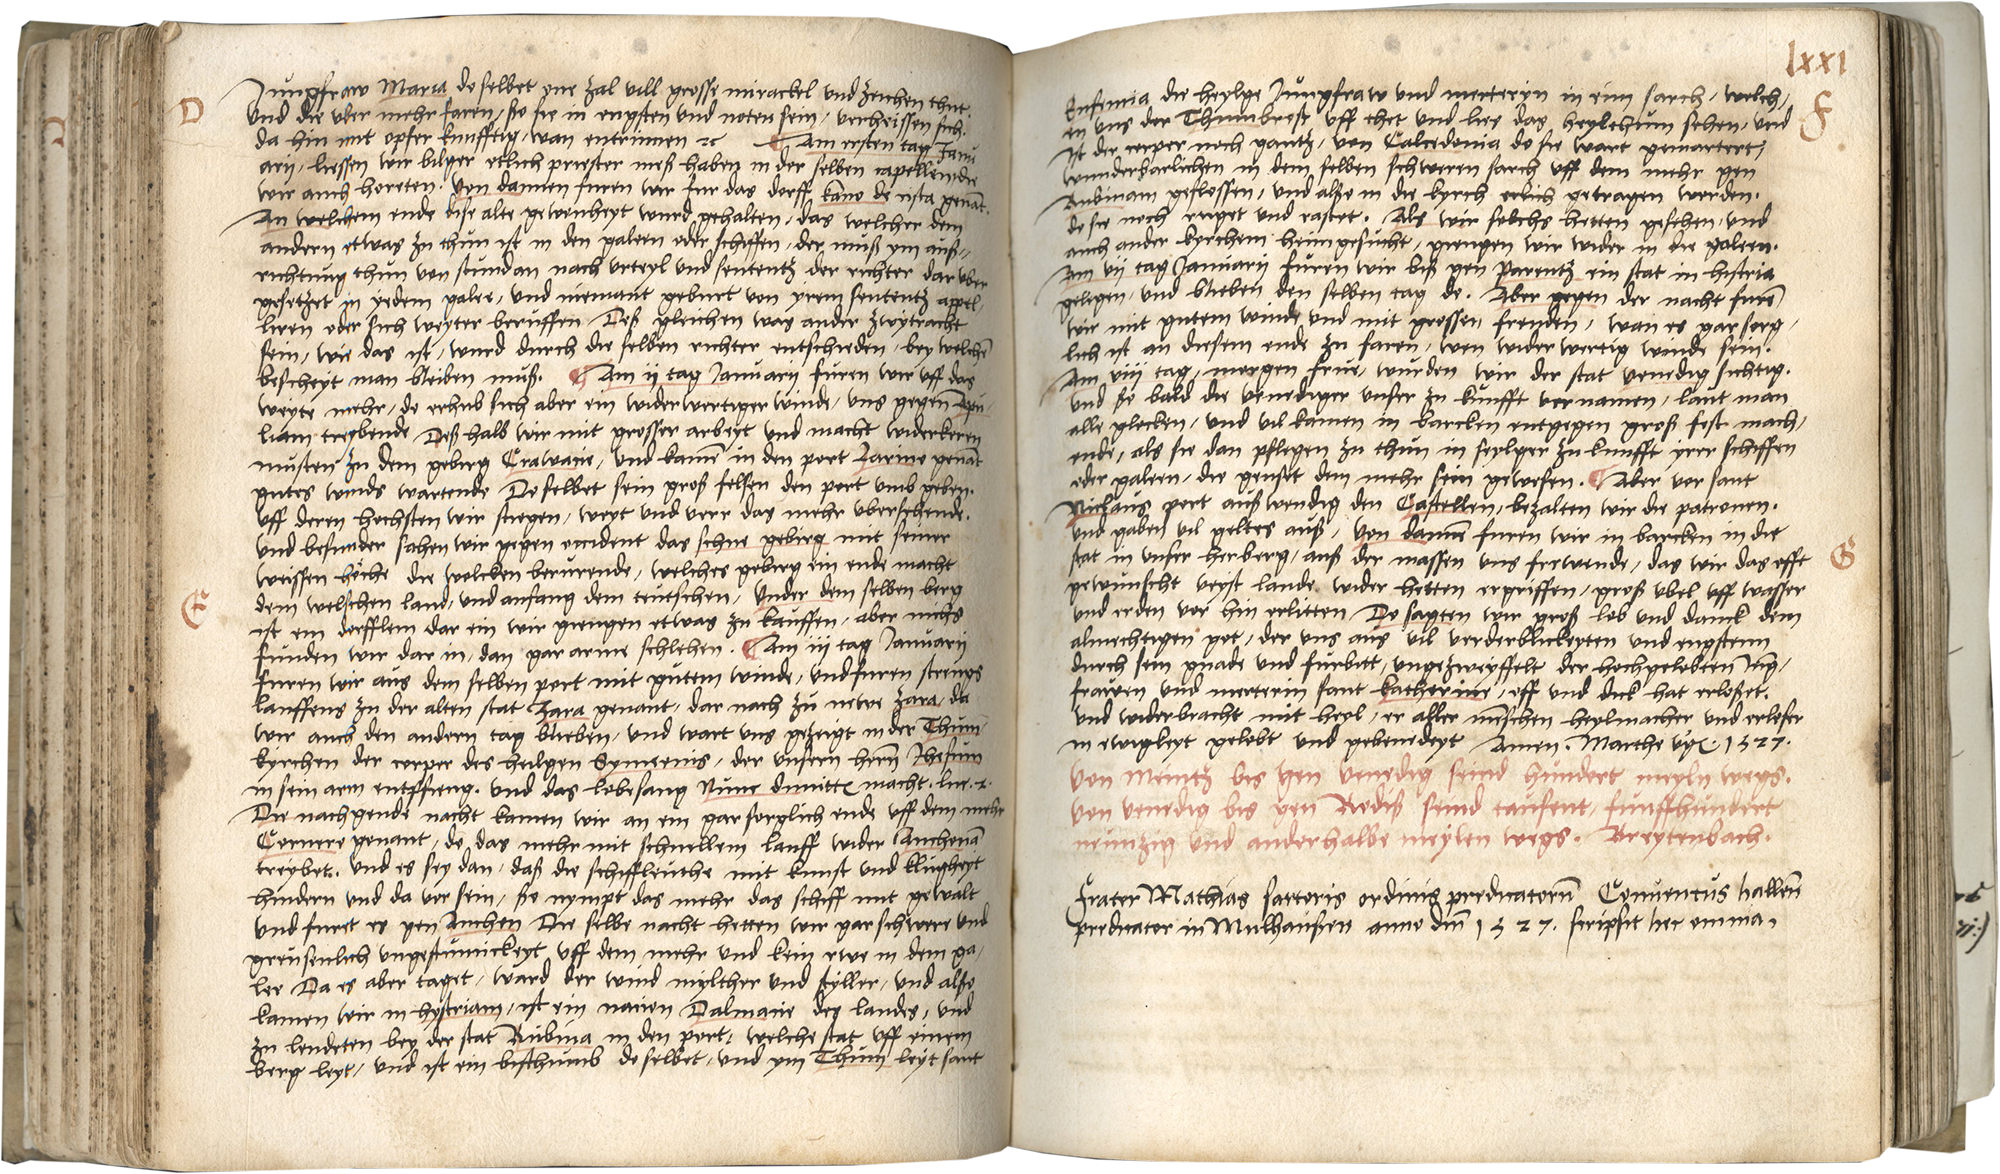 D
Jungfraw Maria do selbet one zal vill grosse mirackel und zeichen thut
Und die uber mehr faren, so sie in engsten und noten sein, verheissen sich
da hin mit opfer kunfftig, wan entrinnen ⁊c Am ersten tag Janu
arij, liessen wir bilger etlich priester meß haben in der selben capellen, die
wir auch horeten. Von dannen furen wir fur das dorff kano de ista genāt.
An welchem ende dise alte gewonheyt wurd gehalten, das welcher dem
andern etwas zu thun ist in den galeen oder schiffen, der muß ym auß-
richtung thun von stundan nach urteyl und sententz der richter dar uber
gesetzet in yedem galee, und niemant geburt von yrem sententz appel
liren oder sich weyter beruffen Deß gleichen was ander zwytracht
sein, wie das ist, wurd durch die selben richter entschieden, bey welchē
bescheyt man bleiben muß. Am ij tag Januarij furen wir uff das
weyte mehr, do erhub sich aber ein widerwertiger winde, uns gegen Apu
liam treybende Deß halb wir mit grosser arbeyt und macht widerkeren
musten zu dem gebirg Crawacie, und kamē in den port Zarme genāt
gutes winds wartende Do selbet sein groß felsen den port umb geben.
Uff deren hochsten wir stiegen, weyt und verr das mehr ubersehende.
und besunder sahen wir gegen occident das schne gebirg mit seiner
weissen hoche die wolcken berurende, welches gebirg ein ende macht
dem welschen land, und anfang dem teutschen, Under dem selben berg
E
ist ein dorfflein dar ein wir giengen etwas zu kauffen, aber nichs
funden wir dar in, dan gar arme schlehen. Am iij tag Januarij
furen wir aus dem selben port mit gutem winde, und furen strengs
lauffens zu der alten stat Zara genant, dar nach zu newe Zara, da
wir auch den andern tag blieben, und wart uns gezeigt in der Thum
kyrchen der corper des heilgen Symeonis, der unsern herrn Jhesum
in sein arm entpfieng. und das lobesang Nunc dimittis macht. luc. 2.
Die nachgende nacht kamen wir an ein gar sorglich ende uff dem mehr
Cornero genant, do das mehr mit schnellem lauff wider Anchonā
treybet. und es sey dan, daß die schiffleuthe mit kunst und klugheyt
hindern und da vor sein, so nympt das mehr das schiff mit gewalt
und furet es gen Anchon Die selbe nacht hetten wir gar schwere und
greusenlich ungestumickeyt uff dem mehr und kein rwe in dem ga-
lee Da es aber taget, ward der wind mylther und styller, und also
kamen wir in hystriam, ist ein nacien Dalmacie des landes, und
zu lendeten bey der stat Rubina in den port, welche stat uff einem
berg leyt, und ist ein bisthumb do selbet, und ym Thum leyt sant
lxxi
F
Eufemia die heylge Jungfraw und merteryn in eim sarch, welch,
en uns der Thumbrost uff thet und lies das heylthum sehen, und
ist der corper noch gantz, von Calcedonia do sie wart gemartert,
wunderbarlichen in dem selben schweren sarch uff dem mehr gen
Rubinam geflossen, und also in die kyrch erlich getragen worden.
do sie noch ruget und rastet. Als wir solchs hetten gesehen, und
auch ander kyrchem heimgesucht, giengen wir wider in die galeen.
Am vij tag Januarij furen wir biß gen Parentz ein stat in histria
gelegen, und blieben den selben tag do. Aber gegen der nacht furē
wir mit gutem winde und mit grossen freuden, wan es gar sorg,
lich ist an diesem ende zu faren, wen widerwertig winde sein.
Am viij tag, morgen frue, wurden wir der stat venedig sichtig.
und so bald die venediger unser zu kunfft vernamen, laut man
alle glocken, und vil kamen in barcken entgegen groß fest mach,
ende, als sie dan pflegen zu thun in seylger zukunfft yrer schiffen
oder galeen, die gensit dem mehr sein gewesen. Aber vor sant
Niclaus port außwendig den Castellen, bezalten wir die patronen.
und gaben vil geltes auß, Von dannē furen wir in barcken in die
G
stat in unser herberg, auß der massen uns frewende, das wir das offt
gewunscht veyst lande wider hetten ergriffen, groß ubel uff wasser
und erden vor hin erlitten Do sagten wir groß lob und danck dem
almechtigen got, der uns aus vil verderblickeyten und engstenn
durch sein gnade und furbitt, ungezweyffelt der hochgelobten Jūg,
frawen und merterin sant katherine, off und dick hat erloßet.
und widerbracht mit heyl, er aller menschen heylmacher und erloser
in ewigkeyt gelobt und gebenedeyt Amen. Marthe vgĩ 1527.
Von Mentz bis gen venedig seind hundert meyln wegs.
von venedig bis gen Rodiß seind tausent, funffhundert
neunzig und anderhalbe meylen wegs. Breytenbach.
Frater Mathias sartoris ordinis predicatorū Conventus hallenn
predicator in Mulhaußen anno dnī 1527. scripsit hec omnia,